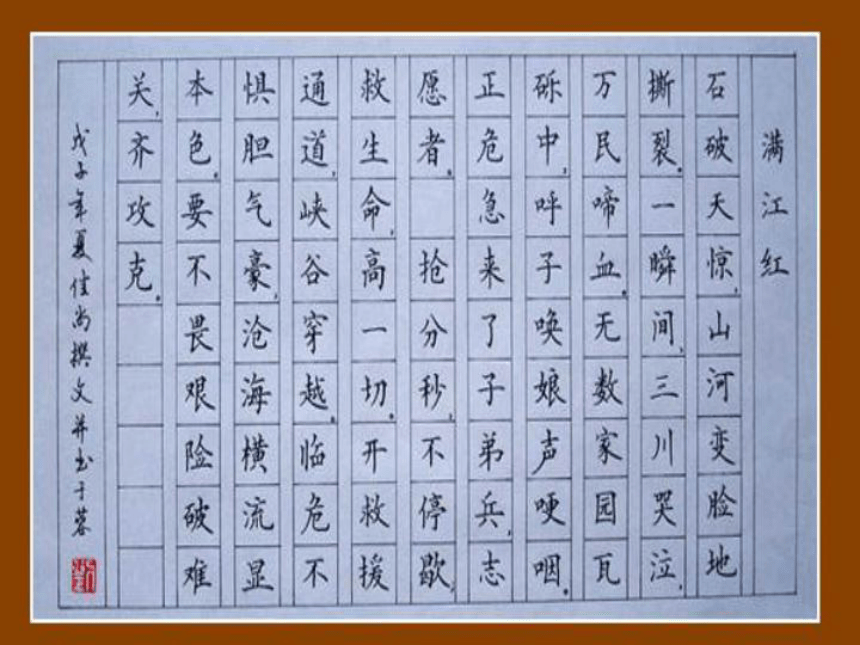 满江红
石破天惊，山河变脸地
撕裂。一瞬间，三川哭泣，
万民啼血。无数家园瓦
砾中，呼子唤娘声哽咽。
正危急来了子弟兵，志
愿者。 抢分秒，不停歇，
救生命，高一切。开救援
通道，峡谷穿越。临危不
惧胆气豪，沧海横流显
本色。要不畏艰险破难
关，齐攻克。
戊子年夏佳尚撰文并书于蓉